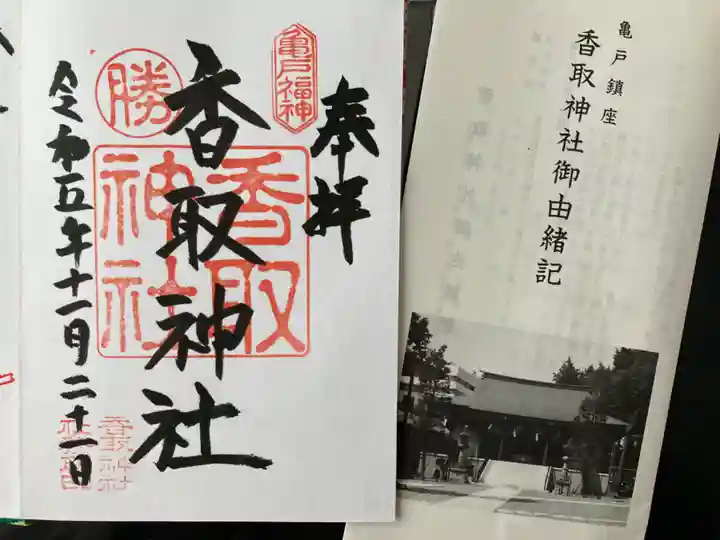 奉拝
亀戸福神
香取神社
香取
神社
勝
令和五年十一月二十一日
香取神社
亀戸鎮座
香取神社御由緒記